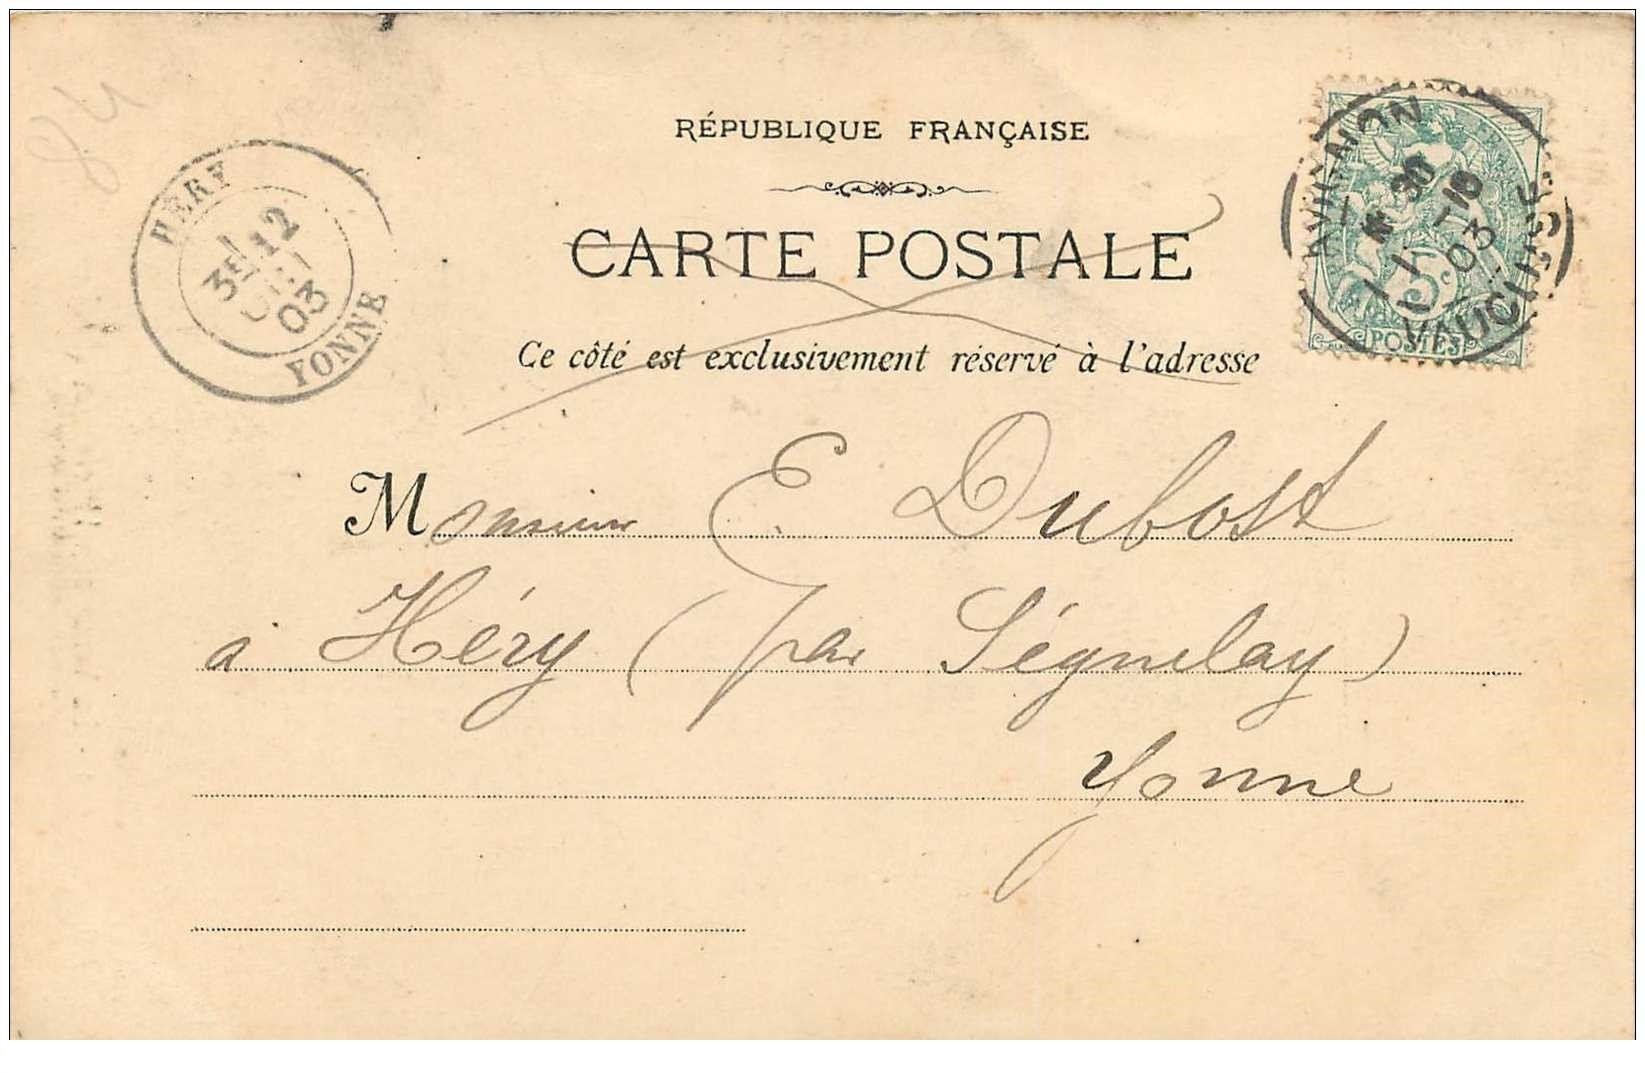 84
RÉPUBLIQUE FRANÇAISE
CARTE POSTALE
Ce côté est exclusivement réservé à l'adresse
HÉRY
3E 12
03
YONNE
AVIGNON
10
03
VAUCLUSE
5c
POSTES
Monsieur E Dubost
à Héry (par Ségnelay)
Yonne